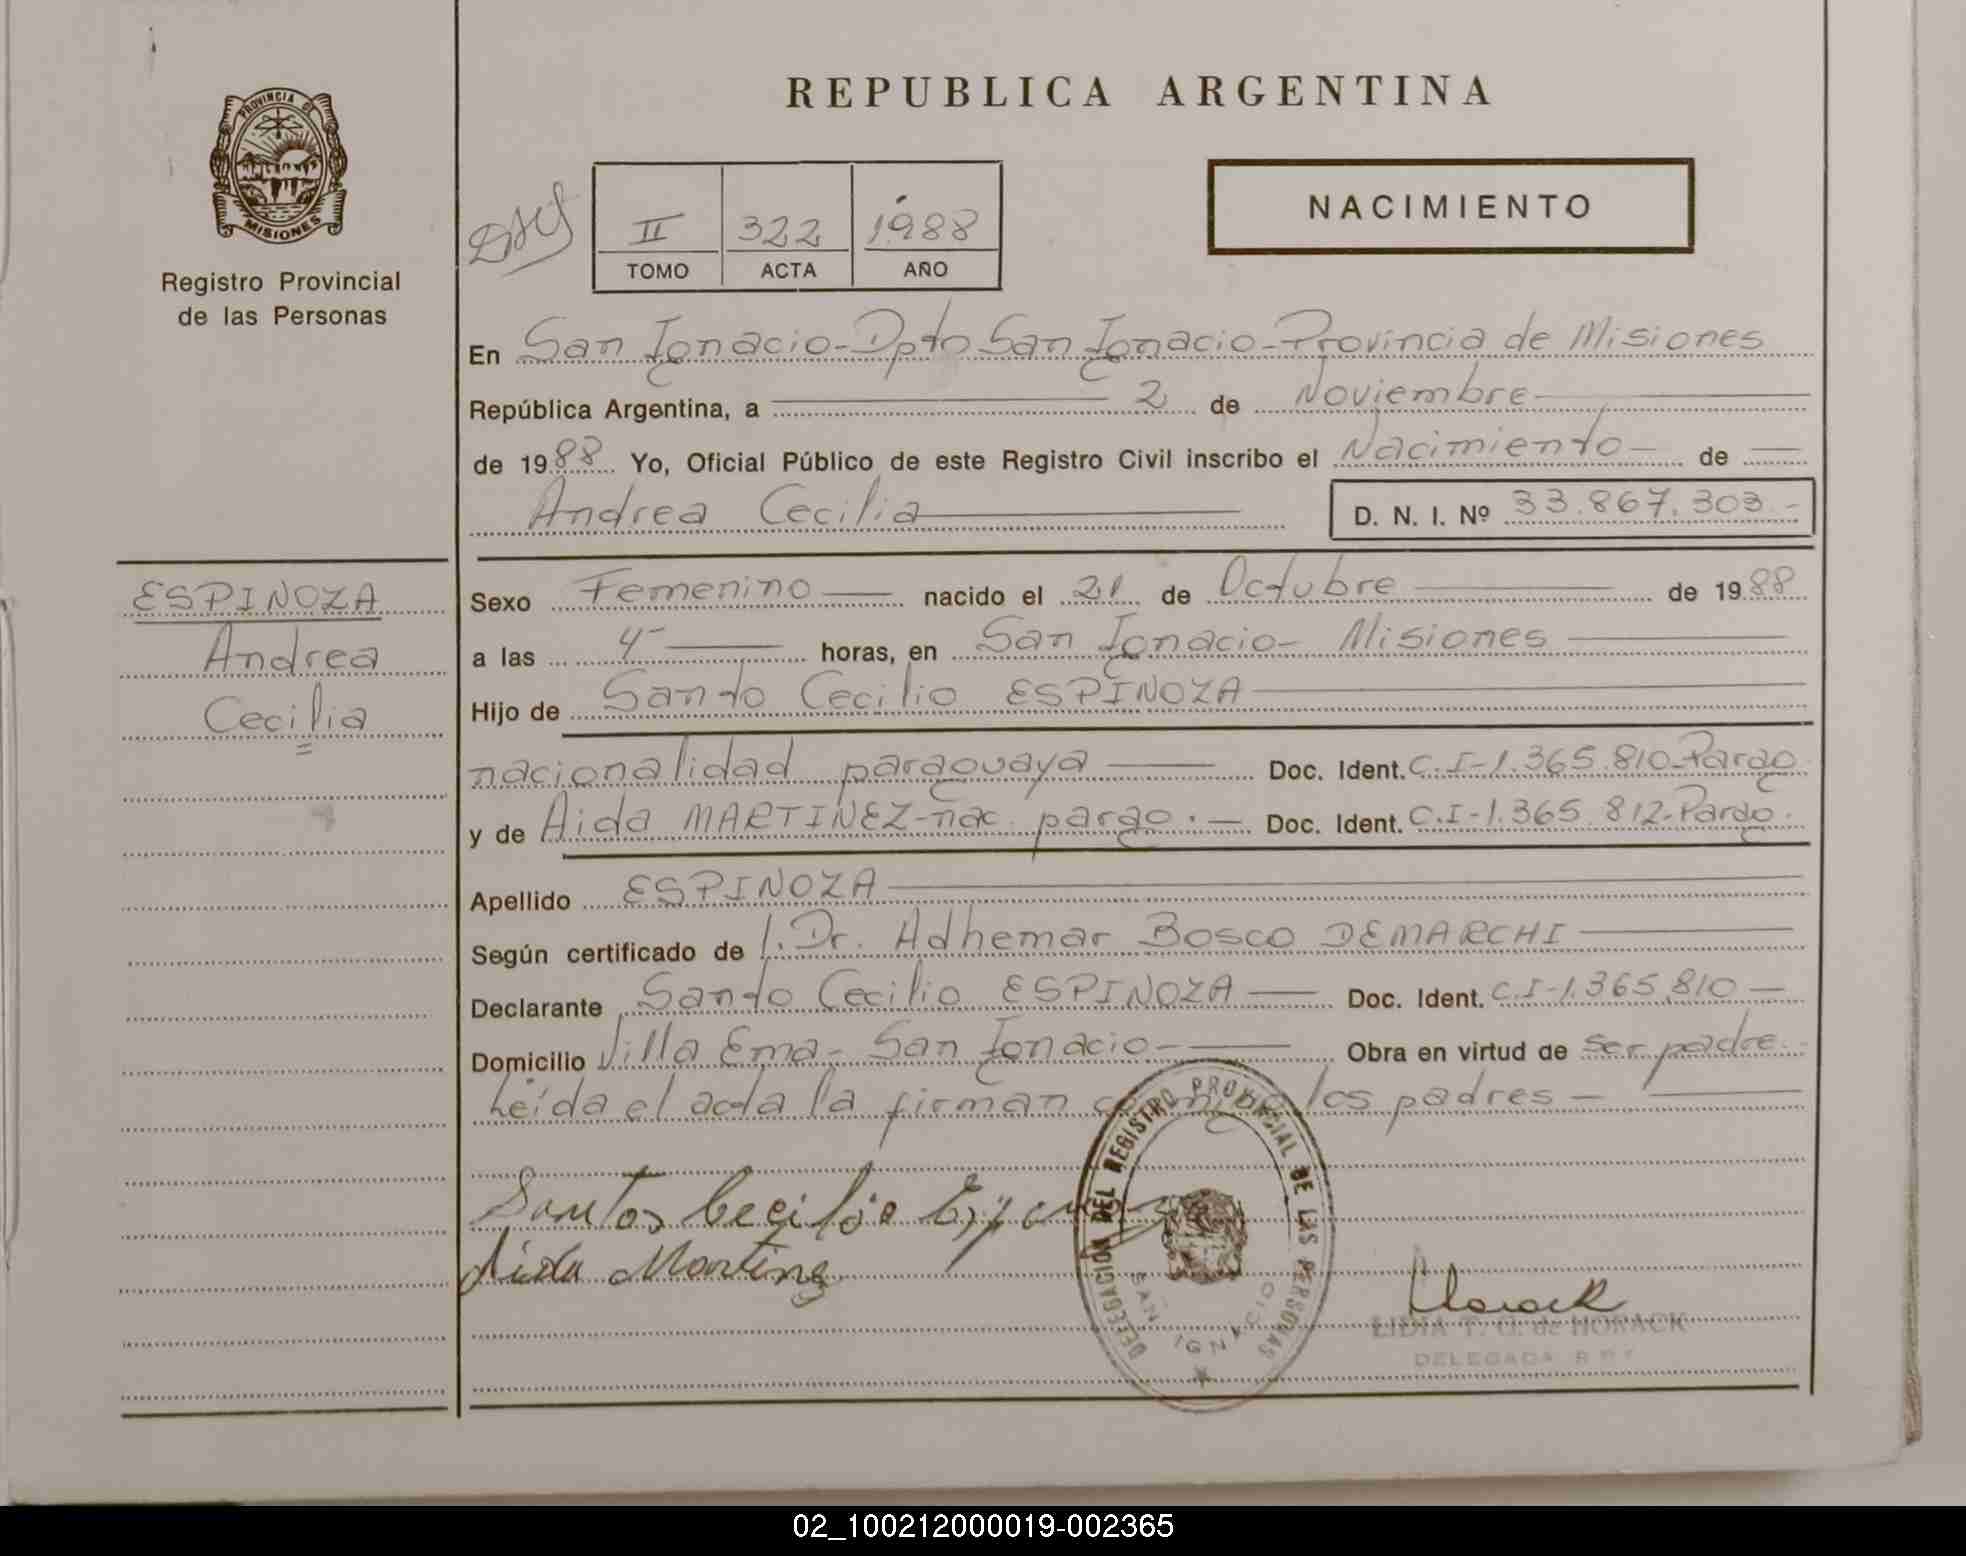 REPUBLICA ARGENTINA
PROVINCIA DE
MISIONES
Registro Provincial
de las Personas
II 322 1988
TOMO ACTA AÑO
NACIMIENTO
En San Ignacio-Dpto San Ignacio-Provincia de Misiones
República Argentina, a 2 de Noviembre
de 1988 Yo, Oficial Público de este Registro Civil inscribo el Nacimiento de
Andrea Cecilia D. N. I. Nº 33.867.303.-
ESPINOZA
Andrea
Cecilia
Sexo Femenino nacido el 21 de Octubre de 1988
a las 4- horas, en San Ignacio- Misiones
Hijo de Santo Cecilio ESPINOZA
nacionalidad paraguaya Doc. Ident. C.I-1.365.810-Pargo
y de Aida MARTINEZ-nac. pargo. Doc. Ident. C.I-1.365.812-Pargo.
Apellido ESPINOZA
Según certificado de l. Dr. Adhemar Bosco DEMARCHI
Declarante Santo Cecilio ESPINOZA Doc. Ident. C.I-1.365.810
Domicilio Villa Ema- San Ignacio- Obra en virtud de ser padre.
Leída el acta la firman conmigo los padres-
Santos Cecilio Espinoza
Aida Martinez
DELEGACION DEL REGISTRO PROVINCIAL DE LAS PERSONAS
SAN IGNACIO
LIDIA T. G. de HORACK
DELEGADA
02_100212000019-002365